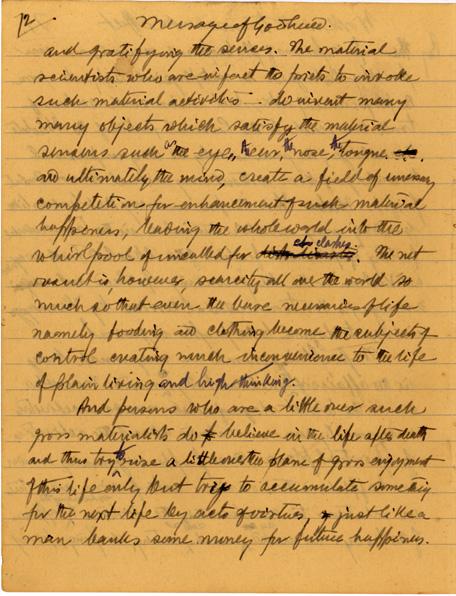 12
Message of Godhead.
and gratifying the senses. The material
scientists who are in fact the priests to invoke
such material activities - do invent many
many objects which satisfy the material
senses such as the eye, the ear, the nose, the tongue.
and ultimately the mind, create a field of unnecessary
competition for enhancement of such material
happiness, leading the whole world into the
whirlpool of uncalled for clashes. The net
result is, however, scarcity all over the world so
much so that even the bare necessaries of life
namely fooding and clothing become the subjects of
control creating much inconvenience to the life
of plain living and high thinking.
And persons who are a little over such
gross materialists do believe in the life after death
and thus try to rise a little over the plane of gross enjoyment
of this life only but try to accumulate something
for the next life by acts of virtues, just like a
man banks some money for future happiness.